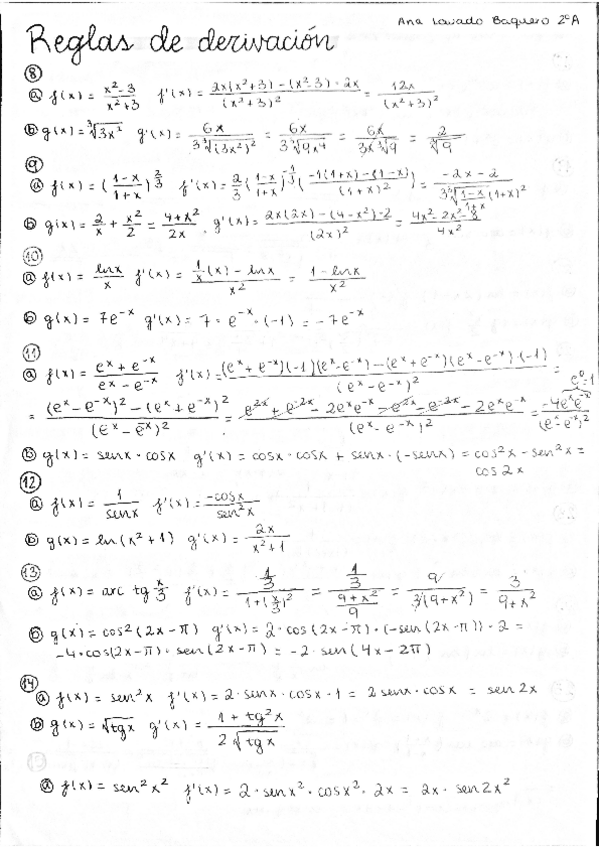 Ana Lavado Baquero 2ºA
Reglas de derivación
⑧
ⓐ f(x) = (x²-3)/(x²+3) f'(x) = (2x(x²+3) - (x²-3)·2x)/(x²+3)² = 12x/(x²+3)²
ⓑ g(x) = ∛(3x²) g'(x) = 6x/(3∛(3x²)²) = 6x/(3∛(9x⁴)) = 6x/(3x∛9) = 2/∛9
⑨
ⓐ f(x) = ((1-x)/(1+x))^(2/3) f'(x) = 2/3 ((1-x)/(1+x))^(-1/3) ((-1(1+x) - (1-x))/(1+x)²) =
ⓑ g(x) = 2/x + x²/2 = g'(x) = (2x(2x) - (4-x²)·2)/(2x)² =
⑩
ⓐ f(x) = lnx/x f'(x) = (1/x·(x) - lnx)/x² = (1-lnx)/x²
ⓑ g(x) = 7e^(-x) g'(x) = 7·e^(-x)·(-1) = -7e^(-x)
⑪
ⓐ f(x) = (eˣ + e^(-x))/(eˣ - e^(-x)) f'(x) = ((eˣ + e^(-x))(-1)(eˣ - e^(-x)) - (eˣ + e^(-x))(eˣ - e^(-x))·(-1))/(eˣ - e^(-x))² =
e⁰=1
= ((eˣ - e^(-x))² - (eˣ + e^(-x))²)/(eˣ - e^(-x))² = (e^(2x) + e^(-2x) - 2eˣe^(-x) - e^(2x) - e^(-2x) - 2eˣe^(-x))/(eˣ - e^(-x))² = -4eˣe^(-x)/(eˣ - e^(-x))²
ⓑ g(x) = senx·cosx g'(x) = cosx·cosx + senx·(-senx) = cos²x - sen²x =
cos2x
⑫
ⓐ f(x) = 1/senx f'(x) = -cosx/sen²x
ⓑ g(x) = ln(x²+1) g'(x) = 2x/(x²+1)
⑬
ⓐ f(x) = arc tg x/3 f'(x) = (1/3)/(1+(x/3)²) = (1/3)/((9+x²)/9) = 9/(3(9+x²)) = 3/(9+x²)
ⓑ g(x) = cos²(2x-π) g'(x) = 2·cos(2x-π)·(-sen(2x-π))·2 =
-4·cos(2x-π)·sen(2x-π) = -2·sen(4x-2π)
⑭
ⓐ f(x) = sen²x f'(x) = 2·senx·cosx·1 = 2senx·cosx = sen2x
ⓑ g(x) = √tgx g'(x) = (1+tg²x)/(2√tgx)
ⓐ f(x) = sen²x² f'(x) = 2·senx²·cosx²·2x = 2x·sen2x²